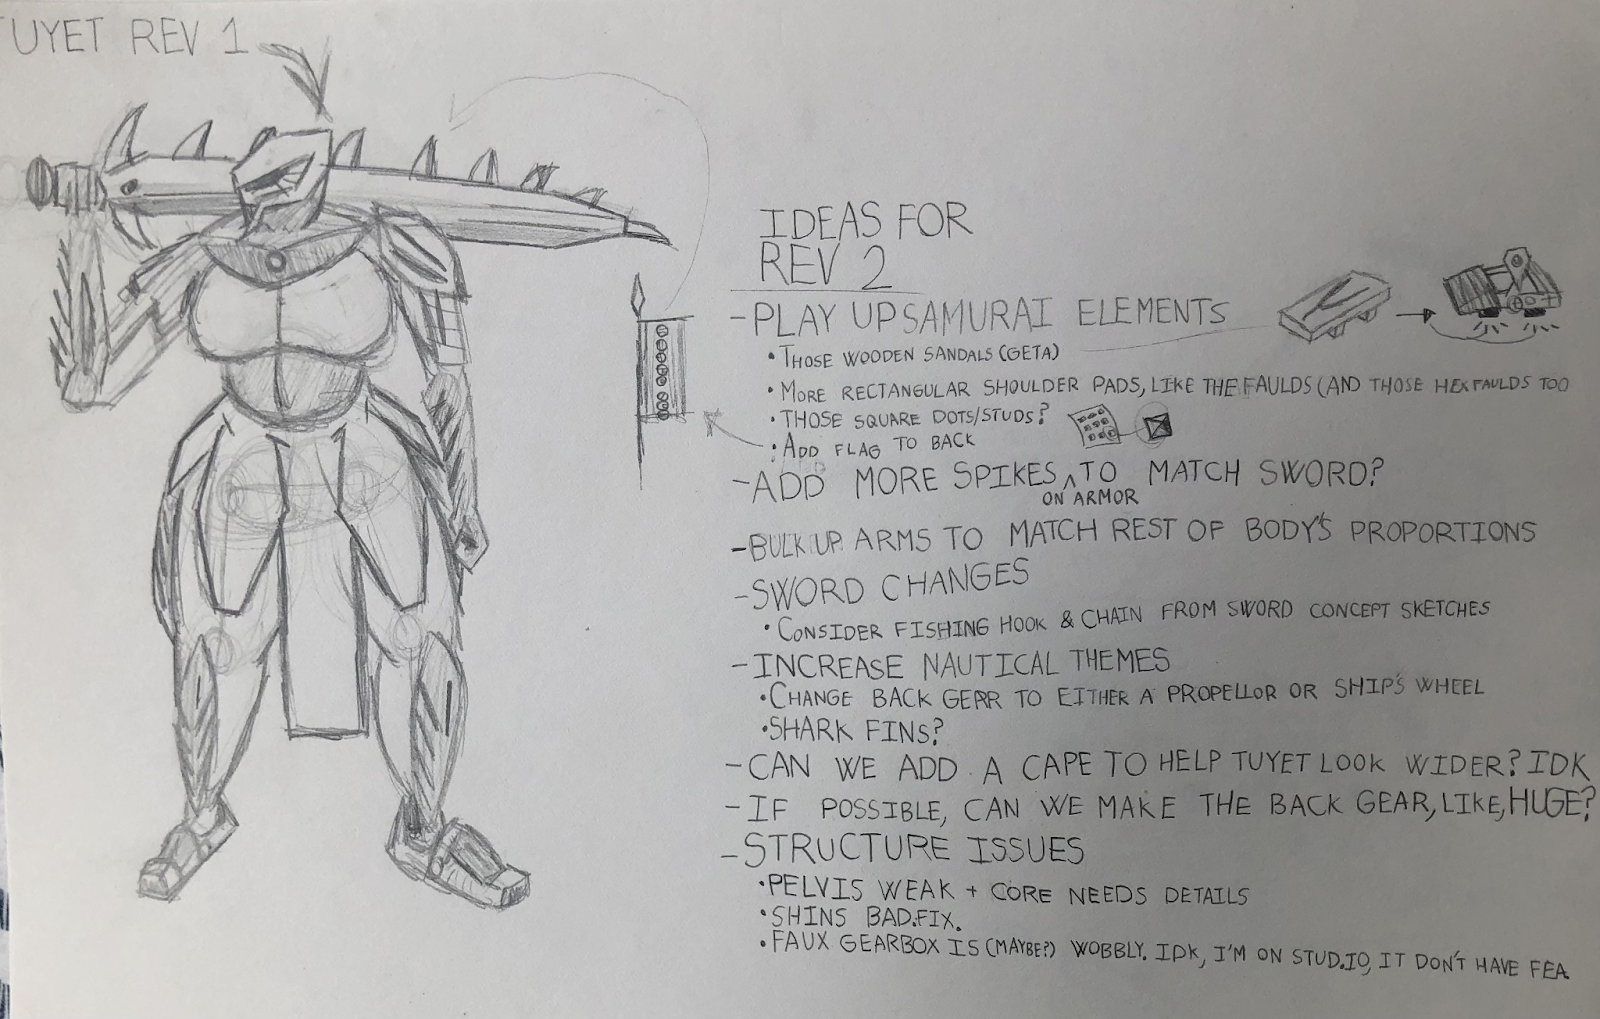 TUYET REV 1
IDEAS FOR
REV 2
- PLAY UP SAMURAI ELEMENTS
• THOSE WOODEN SANDALS (GETA)
• MORE RECTANGULAR SHOULDER PADS, LIKE THE FAULDS (AND THOSE HEX FAULDS TOO
• THOSE SQUARE DOTS/STUDS?
• ADD FLAG TO BACK
- ADD MORE SPIKES ^ TO MATCH SWORD?
ON ARMOR
- BULK UP ARMS TO MATCH REST OF BODY'S PROPORTIONS
- SWORD CHANGES
• CONSIDER FISHING HOOK & CHAIN FROM SWORD CONCEPT SKETCHES
- INCREASE NAUTICAL THEMES
• CHANGE BACK GEAR TO EITHER A PROPELLOR OR SHIP'S WHEEL
• SHARK FINS?
- CAN WE ADD A CAPE TO HELP TUYET LOOK WIDER? IDK
- IF POSSIBLE, CAN WE MAKE THE BACK GEAR, LIKE, HUGE?
- STRUCTURE ISSUES
• PELVIS WEAK + CORE NEEDS DETAILS
• SHINS BAD. FIX.
• FAUX GEARBOX IS (MAYBE?) WOBBLY. IDK, I'M ON STUD.IO, IT DON'T HAVE FEA